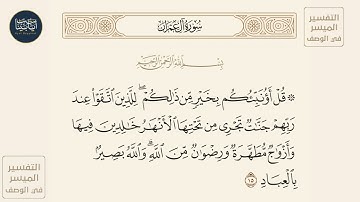 التفسير
الميسر
في الوصف
سورة آل عمران
بِسْمِ اللَّهِ الرَّحْمَٰنِ الرَّحِيمِ
۞ قُلْ أَؤُنَبِّئُكُم بِخَيْرٍ مِّن ذَٰلِكُمْ ۚ لِلَّذِينَ اتَّقَوْا عِندَ
رَبِّهِمْ جَنَّاتٌ تَجْرِي مِن تَحْتِهَا الْأَنْهَارُ خَالِدِينَ فِيهَا
وَأَزْوَاجٌ مُّطَهَّرَةٌ وَرِضْوَانٌ مِّنَ اللَّهِ ۗ وَاللَّهُ بَصِيرٌ
بِالْعِبَادِ ١٥
التفسير
الميسر
في الوصف